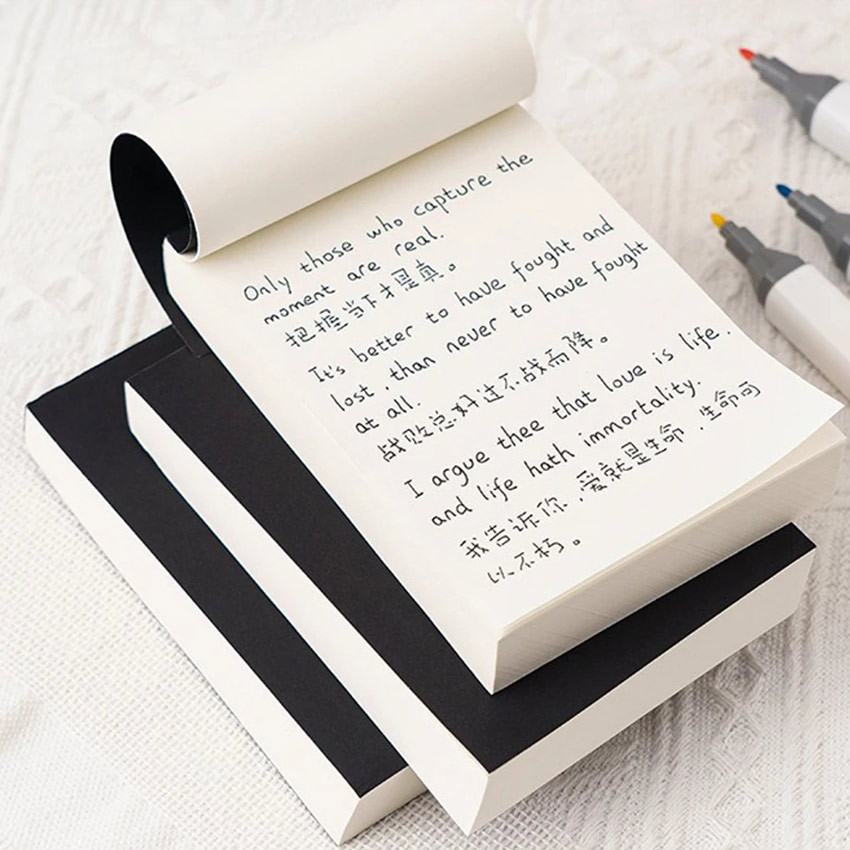 Only those who capture the
moment are real.
把握当下才是真。
It's better to have fought and
lost, than never to have fought
at all.
战败总好过不战而降。
I argue thee that love is life.
and life hath immortality.
我告诉你,爱就是生命,生命可
以不朽。